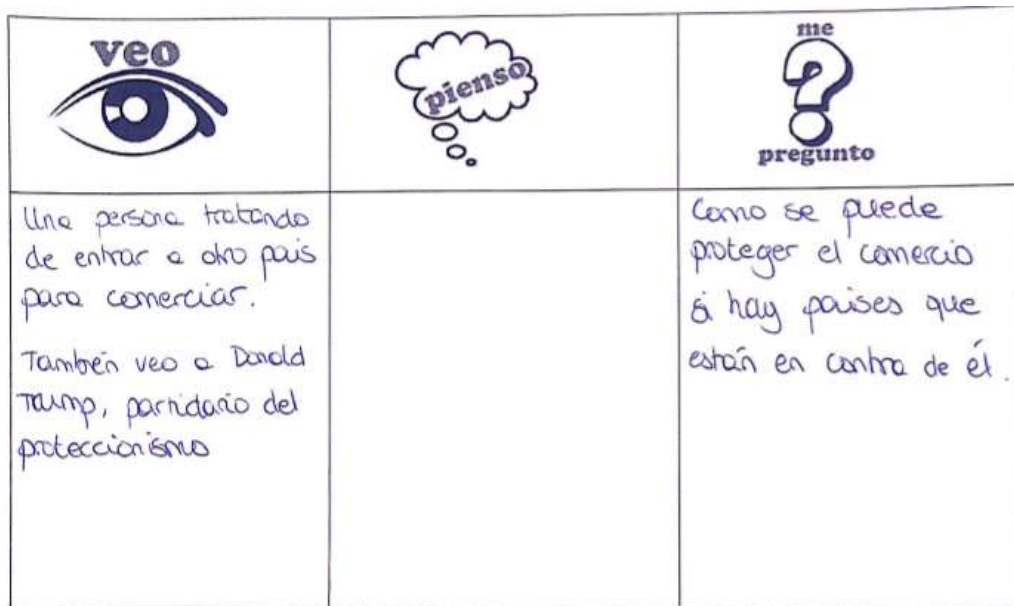 veo
pienso
me
pregunto
Una persona tratando
de entrar a otro pais
para comerciar.
También veo a Donald
Trump, partidario del
proteccionismo
Como se puede
proteger el comercio
si hay países que
están en contra de él.